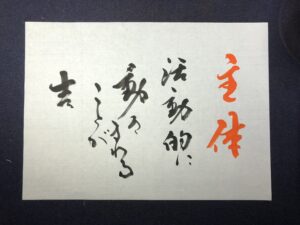 主体
活動的に
動きまわる
ことが
吉